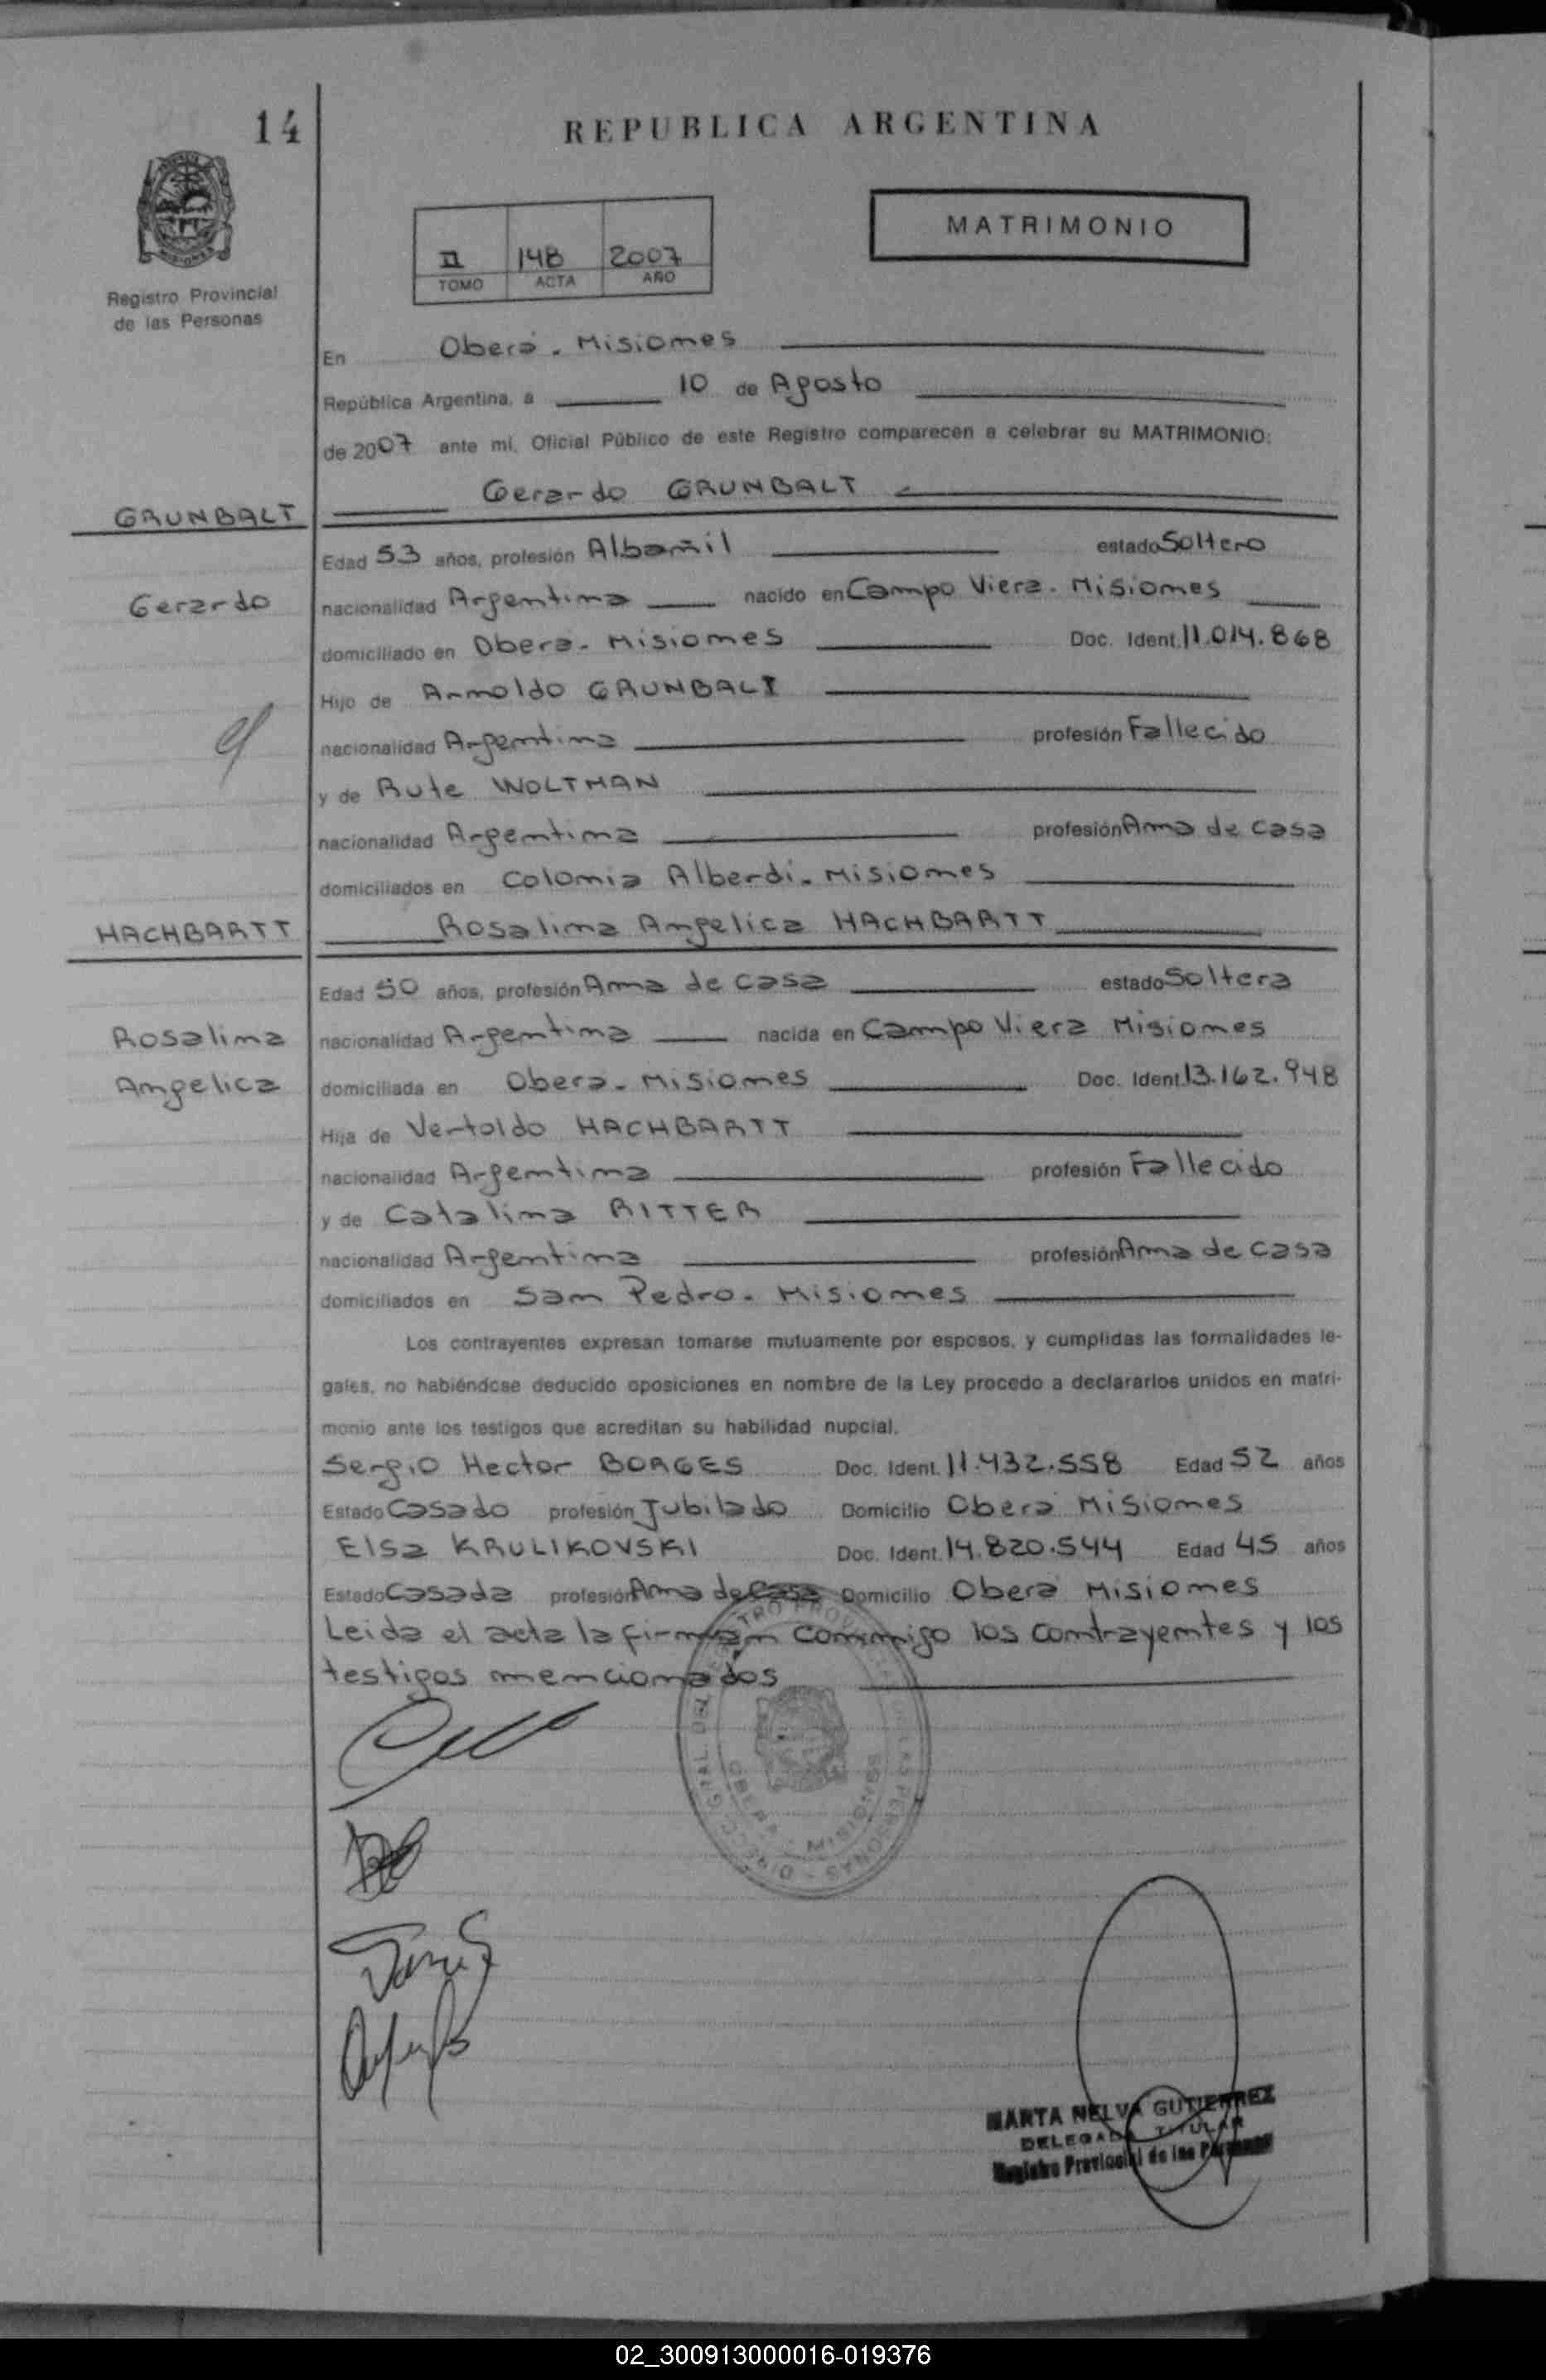 14
REPUBLICA ARGENTINA
MATRIMONIO
II 148 2007
TOMO ACTA AÑO
Registro Provincial
de las Personas
En Oberá. Misiones
República Argentina, a 10 de Agosto
de 2007 ante mí, Oficial Público de este Registro comparecen a celebrar su MATRIMONIO:
GRUNBALT Gerardo GRUNBALT
Edad 53 años, profesión Albañil estado Soltero
Gerardo nacionalidad Argentina nacido en Campo Viera. Misiones
domiciliado en Oberá. Misiones Doc. Ident. 11.014.868
Hijo de Arnoldo GRUNBALT
nacionalidad Argentina profesión Fallecido
y de Rute WOLTMAN
nacionalidad Argentina profesión Ama de casa
domiciliados en Colonia Alberdi. Misiones
HACHBARTT Rosalina Angelica HACHBARTT
Edad 50 años, profesión Ama de casa estado Soltera
Rosalina nacionalidad Argentina nacida en Campo Viera Misiones
Angelica domiciliada en Oberá. Misiones Doc. Ident. 13.162.948
Hija de Vertoldo HACHBARTT
nacionalidad Argentina profesión Fallecido
y de Catalina RITTER
nacionalidad Argentina profesión Ama de casa
domiciliados en San Pedro. Misiones
Los contrayentes expresan tomarse mutuamente por esposos, y cumplidas las formalidades le-
gales, no habiéndose deducido oposiciones en nombre de la Ley procedo a declararlos unidos en matri-
monio ante los testigos que acreditan su habilidad nupcial.
Sergio Hector BORGES Doc. Ident. 11.432.558 Edad 52 años
Estado Casado profesión Jubilado Domicilio Oberá Misiones
Elsa KRULIKOVSKI Doc. Ident. 14.820.544 Edad 45 años
Estado Casada profesión Ama de casa Domicilio Oberá Misiones
Leida el acta la firman conmigo los contrayentes y los
testigos mencionados
DIRECC. GRAL. DEL REGISTRO PROVINCIAL DE LAS PERSONAS
OBERA - MISIONES
MARTA NELVA GUTIERREZ
DELEGADA TITULAR
Registro Provincial de las Personas
02_300913000016-019376